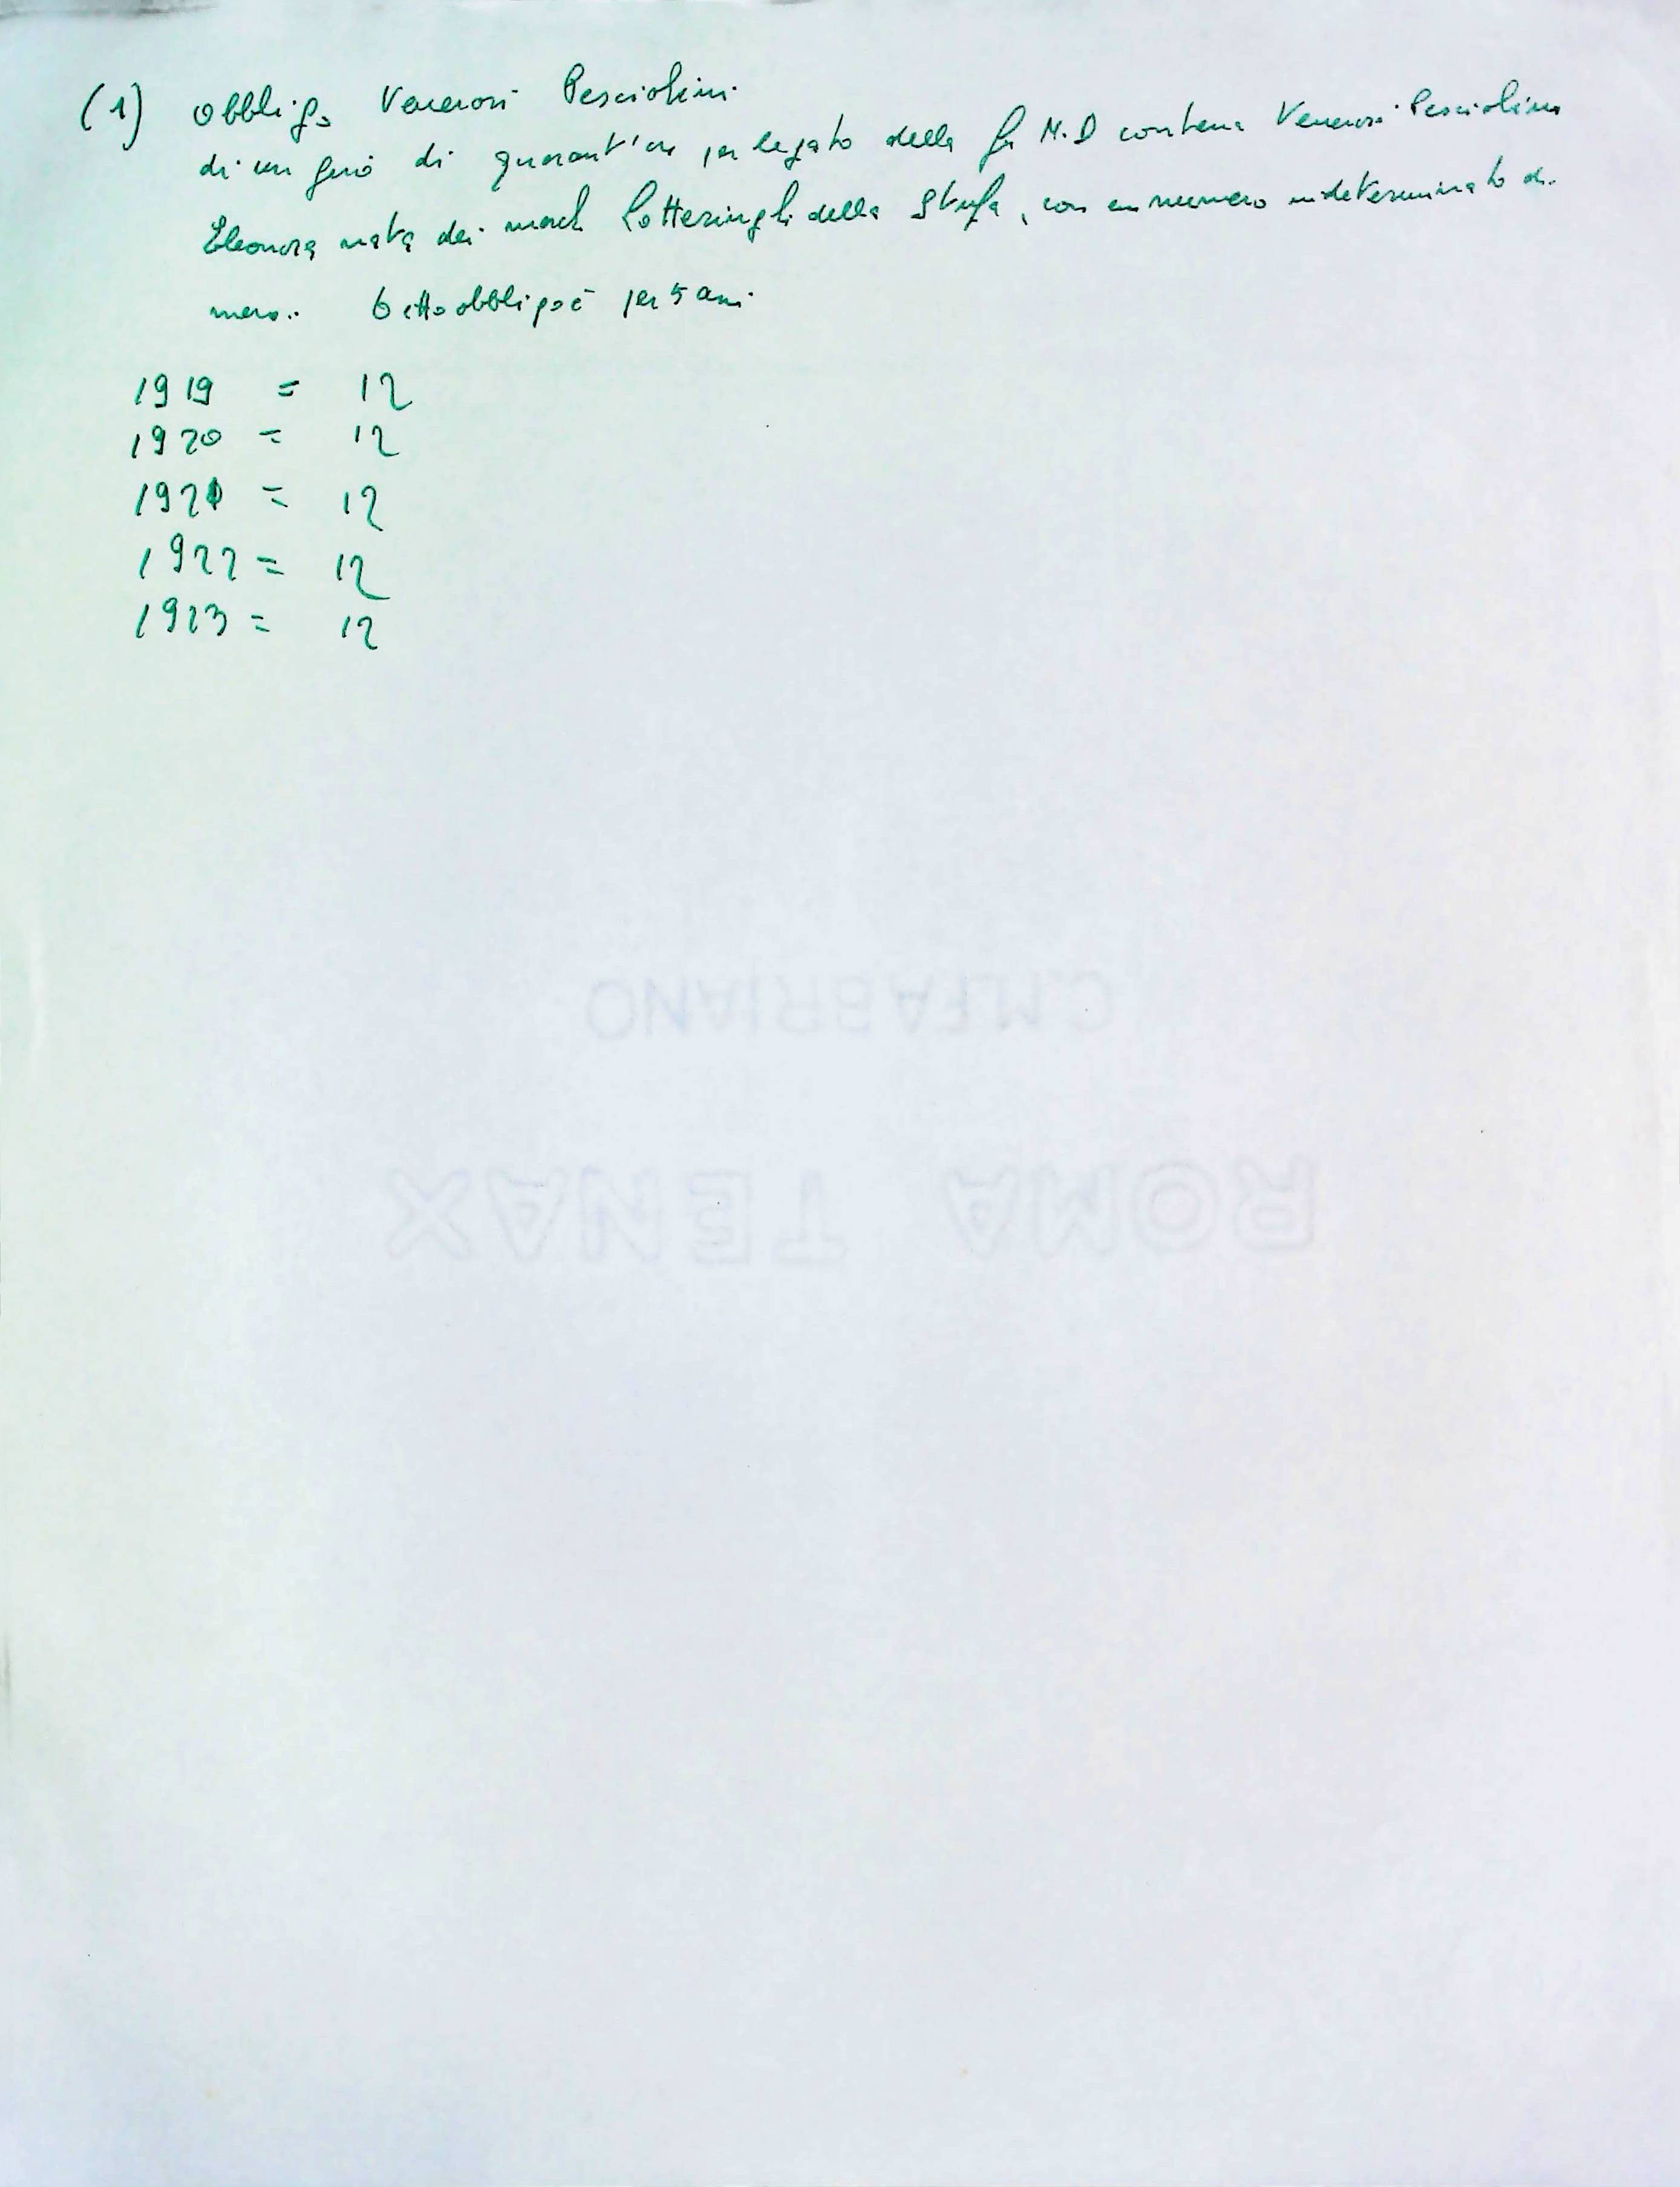 (1) Obbligo Venerosi Pesciolini
di un giro di quarant'ore per legato della fu N.D contessa Venerosi Pesciolini
Eleonora nata dei march Lotteringhi della Stufa, con un numero indeterminato di
messe. Detto obbligo è per 5 anni
1919 = 12
1920 = 12
1921 = 12
1922 = 12
1923 = 12
C.M.FABRIANO
ROMA TENAX